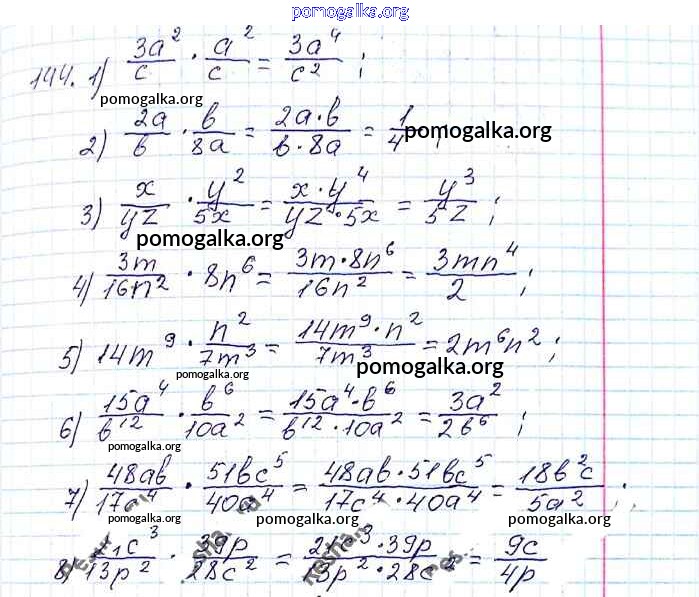 pomogalka.org
144. 1) 3a²/c · a²/c = 3a⁴/c² ;
pomogalka.org
2) 2a/b · b/8a = 2a·b/b·8a = 1/4 ;
pomogalka.org
3) x/yz · y²/5x = x·y⁴/yz·5x = y³/5z ;
pomogalka.org
4) 3m/16n² · 8n⁶ = 3m·8n⁶/16n² = 3mn⁴/2 ;
5) 14m⁹ · n²/7m³ = 14m⁹·n²/7m³ = 2m⁶n² ;
pomogalka.org
pomogalka.org
6) 15a⁴/b¹² · b⁶/10a² = 15a⁴·b⁶/b¹²·10a² = 3a²/2b⁶ ;
pomogalka.org
7) 48ab/17c⁴ · 51bc⁵/40a⁴ = 48ab·51bc⁵/17c⁴·40a⁴ = 18b²c/5a² ;
pomogalka.org
pomogalka.org
8) c³/13p² · 39p/28c² = ³·39p/13p²·28c² = 9c/4p